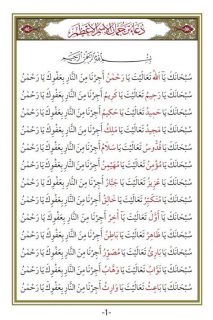 دُعَاءُ تَرْجُمَانِ الْاِسْمِ الْاَعْظَمِ
بِسْمِ اللهِ الرَّحْمٰنِ الرَّحِيمِ
سُبْحَانَكَ يَا اَللهُ تَعَالَيْتَ يَا رَحْمٰنُ اَجِرْنَا مِنَ النَّارِ بِعَفْوِكَ يَا رَحْمٰنُ
سُبْحَانَكَ يَا رَحِيمُ تَعَالَيْتَ يَا كَرِيمُ اَجِرْنَا مِنَ النَّارِ بِعَفْوِكَ يَا رَحْمٰنُ
سُبْحَانَكَ يَا حَمِيدُ تَعَالَيْتَ يَا حَكِيمُ اَجِرْنَا مِنَ النَّارِ بِعَفْوِكَ يَا رَحْمٰنُ
سُبْحَانَكَ يَا مَجِيدُ تَعَالَيْتَ يَا مَلِكُ اَجِرْنَا مِنَ النَّارِ بِعَفْوِكَ يَا رَحْمٰنُ
سُبْحَانَكَ يَا قُدُّوسُ تَعَالَيْتَ يَا سَلَامُ اَجِرْنَا مِنَ النَّارِ بِعَفْوِكَ يَا رَحْمٰنُ
سُبْحَانَكَ يَا مُؤْمِنُ تَعَالَيْتَ يَا مُهَيْمِنُ اَجِرْنَا مِنَ النَّارِ بِعَفْوِكَ يَا رَحْمٰنُ
سُبْحَانَكَ يَا عَزِيزُ تَعَالَيْتَ يَا جَبَّارُ اَجِرْنَا مِنَ النَّارِ بِعَفْوِكَ يَا رَحْمٰنُ
سُبْحَانَكَ يَا مُتَكَبِّرُ تَعَالَيْتَ يَا خَالِقُ اَجِرْنَا مِنَ النَّارِ بِعَفْوِكَ يَا رَحْمٰنُ
سُبْحَانَكَ يَا اَوَّلُ تَعَالَيْتَ يَا آخِرُ اَجِرْنَا مِنَ النَّارِ بِعَفْوِكَ يَا رَحْمٰنُ
سُبْحَانَكَ يَا ظَاهِرُ تَعَالَيْتَ يَا بَاطِنُ اَجِرْنَا مِنَ النَّارِ بِعَفْوِكَ يَا رَحْمٰنُ
سُبْحَانَكَ يَا بَارِئُ تَعَالَيْتَ يَا مُصَوِّرُ اَجِرْنَا مِنَ النَّارِ بِعَفْوِكَ يَا رَحْمٰنُ
سُبْحَانَكَ يَا تَوَّابُ تَعَالَيْتَ يَا وَهَّابُ اَجِرْنَا مِنَ النَّارِ بِعَفْوِكَ يَا رَحْمٰنُ
سُبْحَانَكَ يَا بَاعِثُ تَعَالَيْتَ يَا وَارِثُ اَجِرْنَا مِنَ النَّارِ بِعَفْوِكَ يَا رَحْمٰنُ
-1-